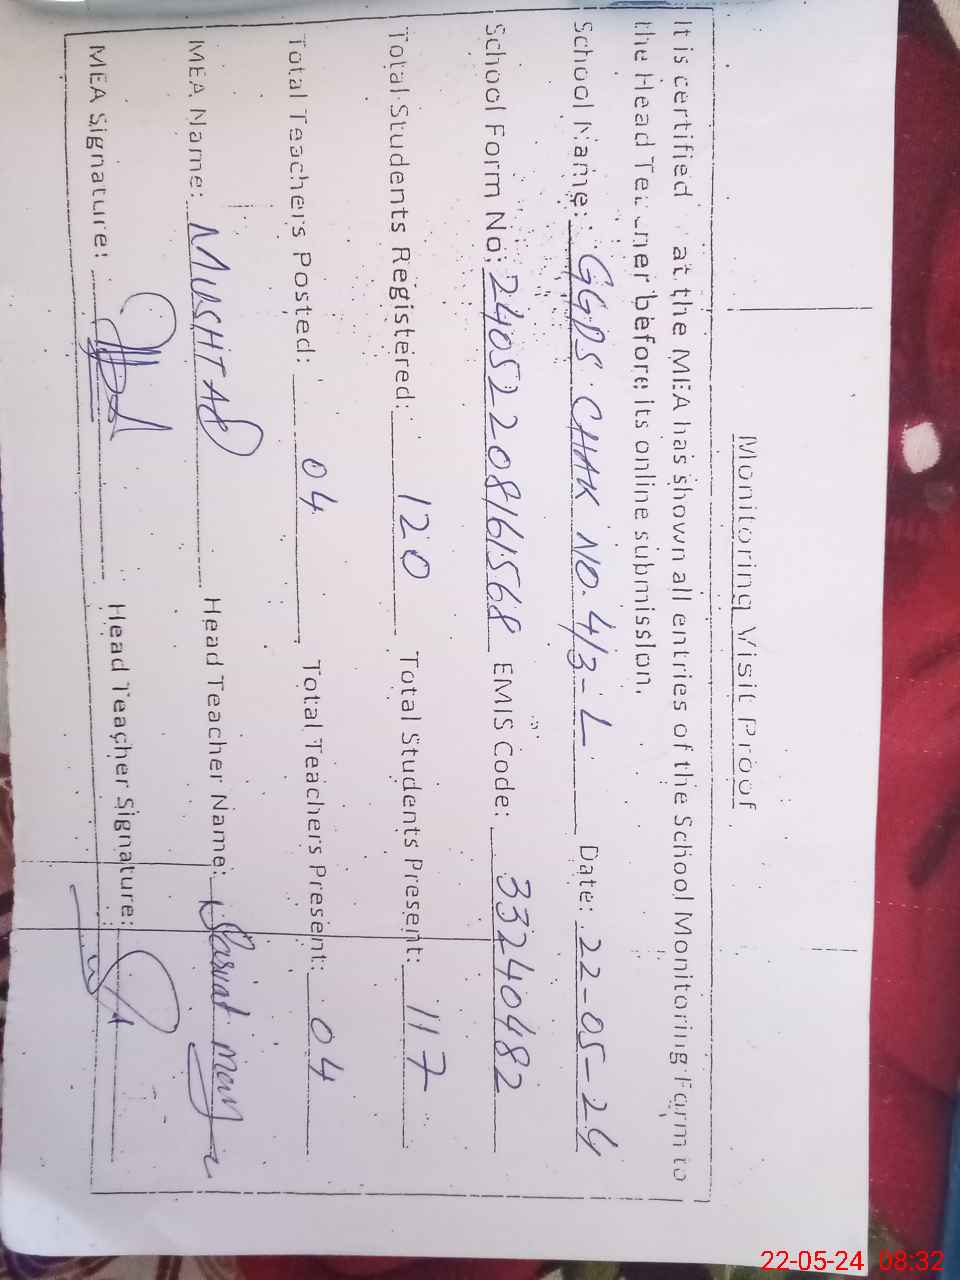 Monitoring Visit Proof
It is certified at the MEA has shown all entries of the School Monitoring Form to
the Head Teacher before its online submission.
School Name: GGPS. CHAK NO. 4/3-L Date: 22-05-24
School Form No: 24052208161568 EMIS Code: 33240482
Total Students Registered: 120 Total Students Present: 117
Total Teachers Posted: 04 Total Teachers Present: 04
MEA Name: MUSHTAQ Head Teacher Name:
MEA Signature: Head Teacher Signature:
22-05-24 08:32